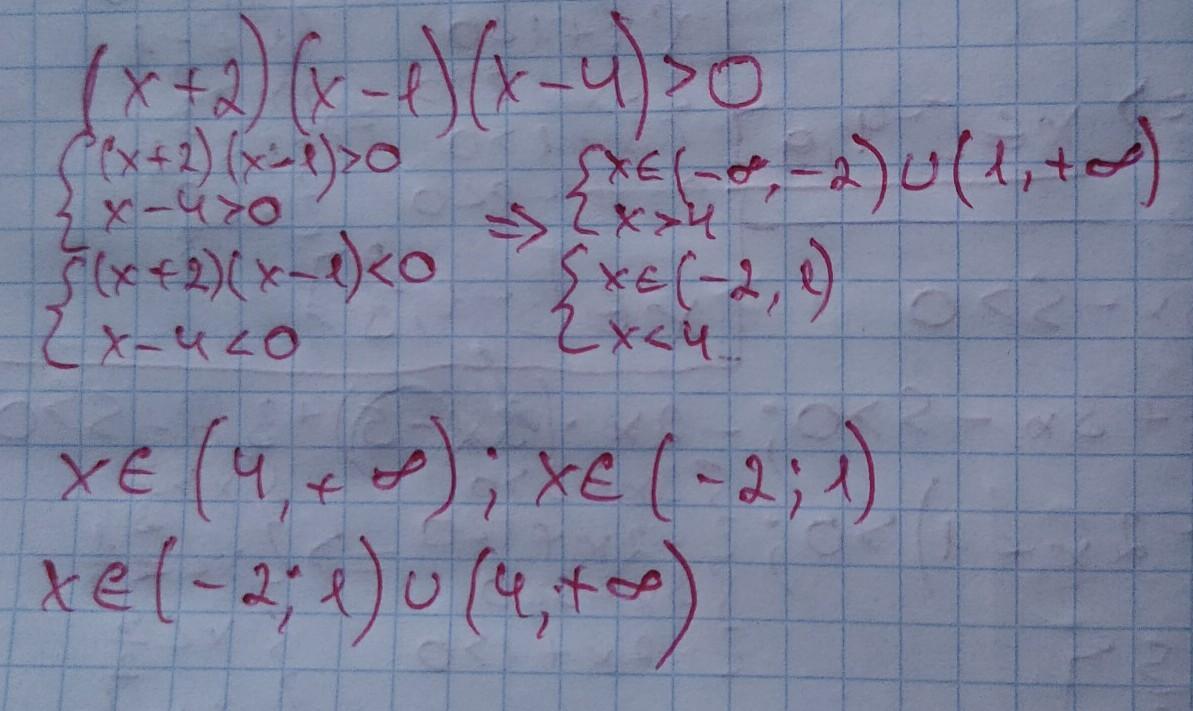 (x+2)(x-1)(x-4)>0
{(x+2)(x-1)>0
{x-4>0
{(x+2)(x-1)<0
{x-4<0
=> {x∈(-∞,-2)∪(1,+∞)
{x>4
{x∈(-2,1)
{x<4
x∈(4,+∞); x∈(-2;1)
x∈(-2;1)∪(4,+∞)